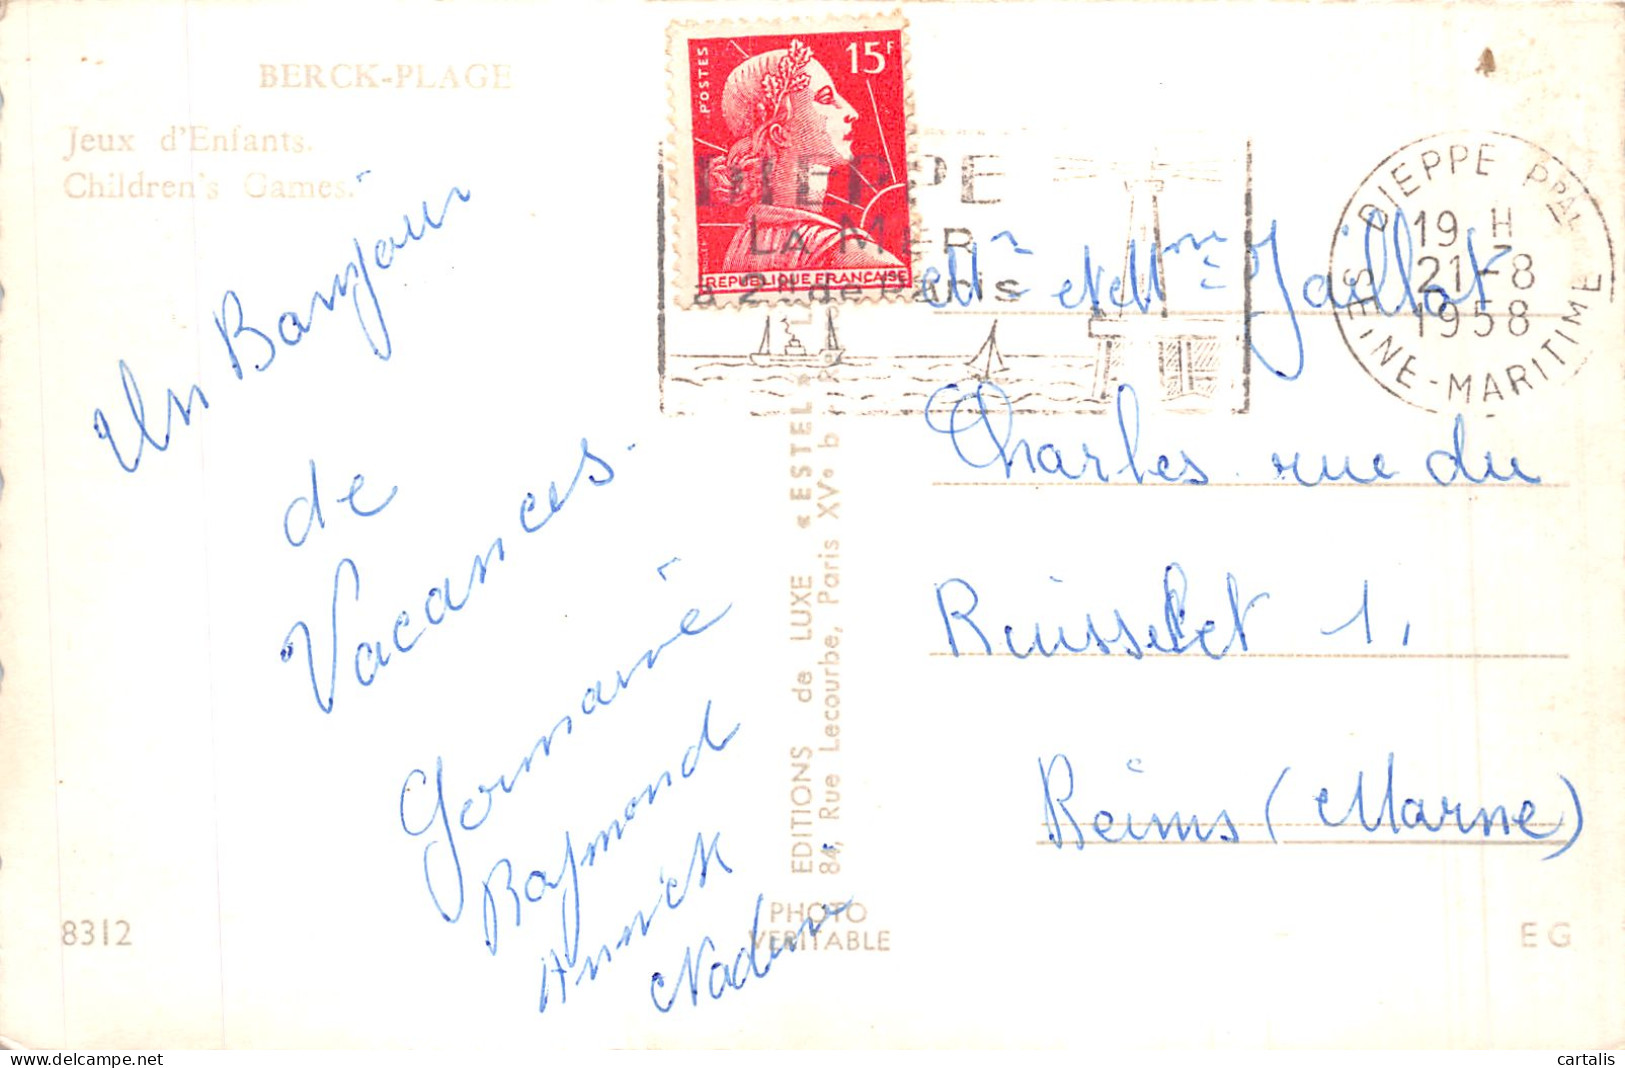 BERCK-PLAGE
Jeux d'Enfants.
Children's Games.
Un Bonjour
de
Vacances.
Germaine
Raymond
Annick
Nadine
8312
POSTES
15F
REPUBLIQUE FRANÇAISE
DIEPPE
LA MER
à 2H de Paris
DIEPPE PPAL
19 H
21-8
1958
SEINE-MARITIME
EDITIONS de LUXE « ESTEL »
84, Rue Lecourbe, Paris XVe
PHOTO
VERITABLE
Mr et Mme Jaillot
Charles rue du
Ruisselet 1,
Reims (Marne)
E G
cartalis
www.delcampe.net